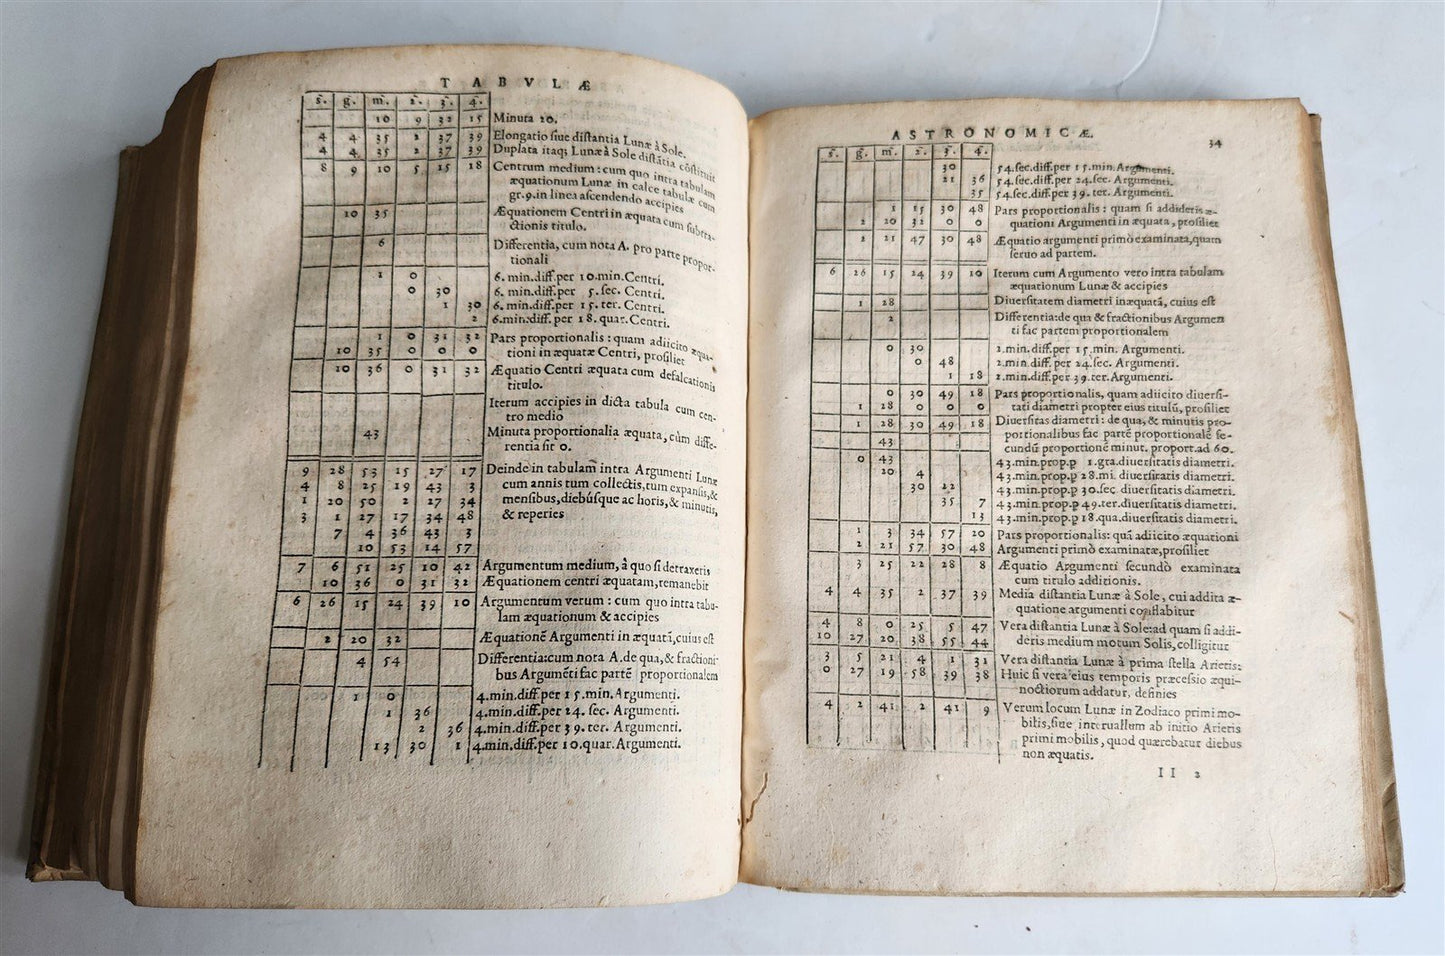 TABVLÆ
s. g. m. 2. 3. 4.
10 9 32 15 Minuta 10.
4 4 35 2 37 39 Elongatio siue distantia Lunæ à Sole.
4 4 35 2 37 39 Duplata itaqȝ Lunæ à Sole distãtia cõstituit
8 9 10 5 15 18 Centrum medium: cum quo intra tabulam
æquationum Lunæ in calce tabulæ cum
gr. 9. in linea ascendendo accipies
10 35 Æquationem Centri in æquata cum subtra-
ctionis titulo.
6 Differentia, cum nota A. pro parte propor-
tionali
1 0 6. min. diff. per 10. min. Centri.
0 30 6. min. diff. per 5. sec. Centri.
1 30 6. min. diff. per 15. ter. Centri.
2 6. min. diff. per 18. quar. Centri.
1 0 31 32 Pars proportionalis: quam adiicito æqua-
10 35 0 0 0 tioni in æquatæ Centri, prosiliet
10 36 0 31 32 Æquatio Centri æquata cum defalcationis
titulo.
Iterum accipies in dicta tabula cum cen-
tro medio
43 Minuta proportionalia æquata, cùm diffe-
rentia sit 0.
9 28 53 15 27 17 Deinde in tabulam intra Argumenti Lunæ
4 8 25 19 43 3 cum annis tum collectis, tum expansis, &
1 20 50 2 27 34 mensibus, diebúsque ac horis, & minutis,
3 1 27 17 34 48 & reperies
7 4 36 43 3
10 53 14 57
7 6 51 25 10 42 Argumentum medium, à quo si detraxeris
10 36 0 31 32 Æquationem centri æquatam, remanebit
6 26 15 24 39 10 Argumentum verum: cum quo intra tabu-
lam æquationum & accipies
2 20 32 Æquationẽ Argumenti in æquatã, cuius est
4 54 Differentia: cum nota A. de qua, & fractioni-
bus Argumẽti fac partẽ proportionalem
1 0 4. min. diff. per 15. min. Argumenti.
1 36 4. min. diff. per 24. sec. Argumenti.
2 36 4. min. diff. per 39. ter. Argumenti.
13 30 1 4. min. diff. per 10. quar. Argumenti.
ASTRONOMICÆ. 34
s. g. m. 2. 3. 4.
30 54. sec. diff. per 15. min. Argumenti.
21 36 54. sec. diff. per 24. sec. Argumenti.
35 54. sec. diff. per 39. ter. Argumenti.
1 15 30 48 Pars proportionalis: quam si addideris æ-
2 20 32 0 0 quationi Argumenti in æquata, prosiliet
2 21 47 30 48 Æquatio argumenti primò examinata, quam
seruo ad partem.
6 26 15 24 39 10 Iterum cum Argumento vero intra tabulam
æquationum Lunæ & accipies
1 28 Diuersitatem diametri inæquatã, cuius est
2 Differentia: de qua & fractionibus Argumen
ti fac partem proportionalem
0 30 2. min. diff. per 15. min. Argumenti.
0 48 2. min. diff. per 24. sec. Argumenti.
1 18 2. min. diff. per 39. ter. Argumenti.
0 30 49 18 Pars proportionalis, quam adiicito diuersi-
1 28 0 0 0 tati diametri propter eius titulũ, prosiliet
1 28 30 49 18 Diuersitas diametri: de qua, & minutis pro-
43 portionalibus fac partẽ proportionalẽ se-
cundũ proportionẽ minut. proport. ad 60.
0 43 43. min. prop. p 1. gra. diuersitatis diametri.
20 4 43. min. prop. p 28. mi. diuersitatis diametri.
30 22 43. min. prop. p 30. sec. diuersitatis diametri.
35 7 43. min. prop. p 49. ter. diuersitatis diametri.
13 43. min. prop. p 18. qua. diuersitatis diametri.
1 3 34 57 20 Pars proportionalis: quã adiicito æquationi
2 21 57 30 48 Argumenti primò examinatæ, prosiliet
3 25 22 28 8 Æquatio Argumenti secundò examinata
cum titulo additionis.
4 4 35 2 37 39 Media distantia Lunæ à Sole, cui addita æ-
quatione argumenti conflabitur
4 8 0 25 5 47 Vera distantia Lunæ à Sole: ad quam si addi-
10 27 20 38 55 44 deris medium motum Solis, colligitur
3 5 21 4 1 31 Vera distantia Lunæ à prima stella Arietis:
0 27 19 58 39 38 Huic si vera eius temporis præcessio æqui-
noctiorum addatur, definies
4 2 41 2 41 9 Verum locum Lunæ in Zodiaco primi mo-
bilis, siue interuallum ab initio Arietis
primi mobilis, quod quærebatur diebus
non æquatis.
II 2